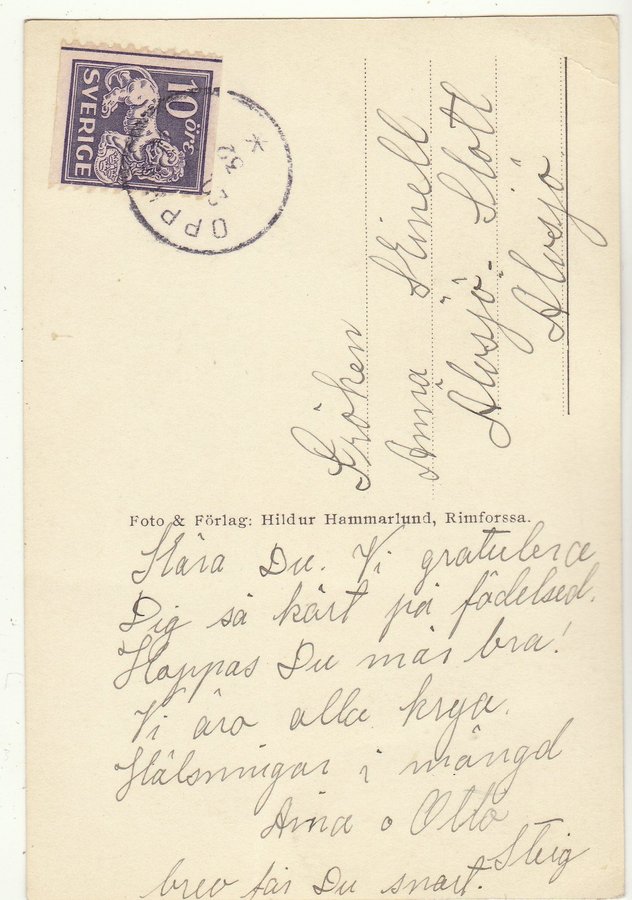 SVERIGE
10 ÖRE
OPP
Fröken
Anna
Älvsjö - Slott
Älvsjö
Foto & Förlag: Hildur Hammarlund, Rimforssa.
Kära Du. Vi gratulera
Dig så kärt på födelsed.
Hoppas Du mår bra!
Vi äro alla krya.
Hälsningar i mängd
Aina o Otto
Stig
brev får Du snart.